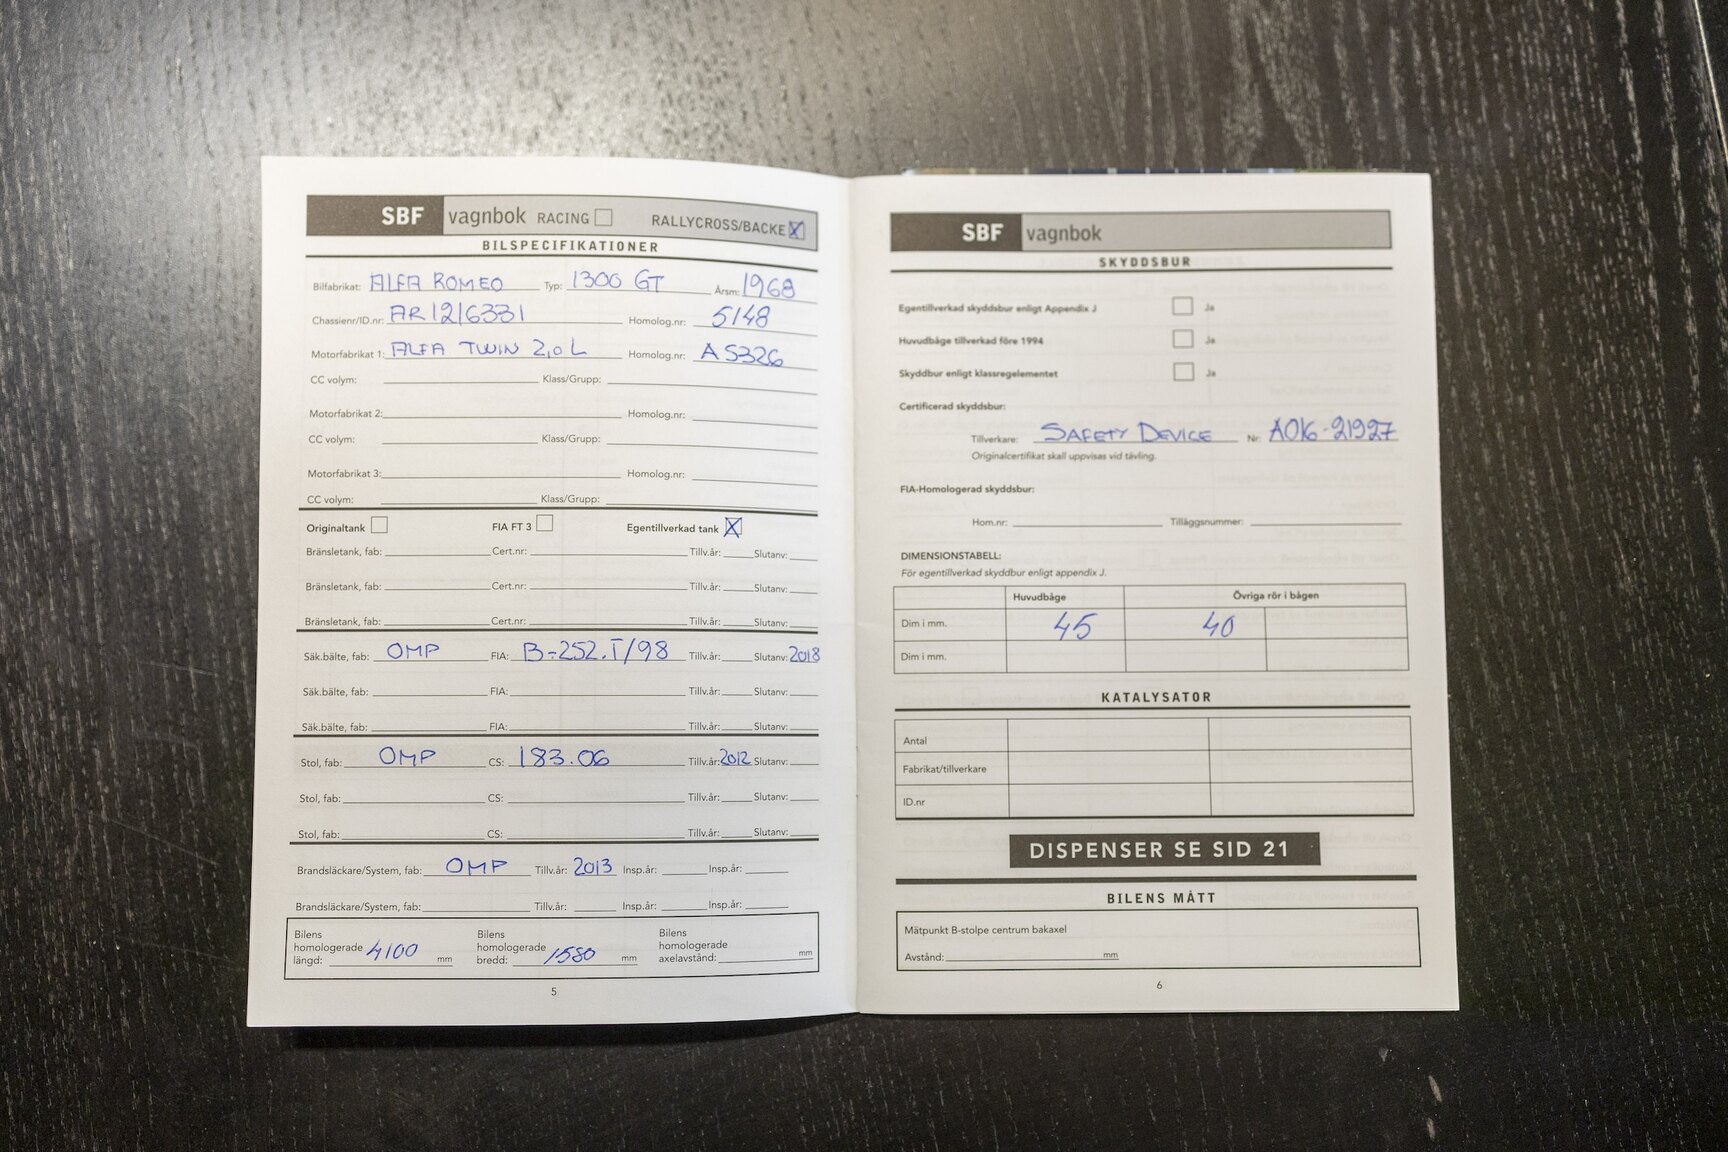 SBF vagnbok RACING RALLYCROSS/BACKE X
BILSPECIFIKATIONER
Bilfabrikat: ALFA ROMEO Typ: 1300 GT Årsm: 1968
Chassienr/ID.nr: AR1216331 Homolog.nr: 5148
Motorfabrikat 1: ALFA TWIN 2,0 L Homolog.nr: AS326
CC volym: Klass/Grupp:
Motorfabrikat 2: Homolog.nr:
CC volym: Klass/Grupp:
Motorfabrikat 3: Homolog.nr:
CC volym: Klass/Grupp:
Originaltank FIA FT 3 Egentillverkad tank X
Bränsletank, fab: Cert.nr: Tillv.år: Slutanv:
Bränsletank, fab: Cert.nr: Tillv.år: Slutanv:
Bränsletank, fab: Cert.nr: Tillv.år: Slutanv:
Säk.bälte, fab: OMP FIA: B-252.T/98 Tillv.år: Slutanv: 2018
Säk.bälte, fab: FIA: Tillv.år: Slutanv:
Säk.bälte, fab: FIA: Tillv.år: Slutanv:
Stol, fab: OMP CS: 183.06 Tillv.år: 2012 Slutanv:
Stol, fab: CS: Tillv.år: Slutanv:
Stol, fab: CS: Tillv.år: Slutanv:
Brandsläckare/System, fab: OMP Tillv.år: 2013 Insp.år: Insp.år:
Brandsläckare/System, fab: Tillv.år: Insp.år: Insp.år:
Bilens homologerade längd: 4100 mm Bilens homologerade bredd: 1580 mm Bilens homologerade axelavstånd: mm
5
SBF vagnbok
SKYDDSBUR
Egentillverkad skyddsbur enligt Appendix J Ja
Huvudbåge tillverkad före 1994 Ja
Skyddbur enligt klassregelementet Ja
Certificerad skyddsbur:
Tillverkare: SAFETY DEVICE Nr: A016-21927
Originalcertifikat skall uppvisas vid tävling.
FIA-Homologerad skyddsbur:
Hom.nr: Tilläggsnummer:
DIMENSIONSTABELL:
För egentillverkad skyddbur enligt appendix J.
Huvudbåge Övriga rör i bågen
Dim i mm. 45 40
Dim i mm.
KATALYSATOR
Antal
Fabrikat/tillverkare
ID.nr
DISPENSER SE SID 21
BILENS MÅTT
Mätpunkt B-stolpe centrum bakaxel
Avstånd: mm
6